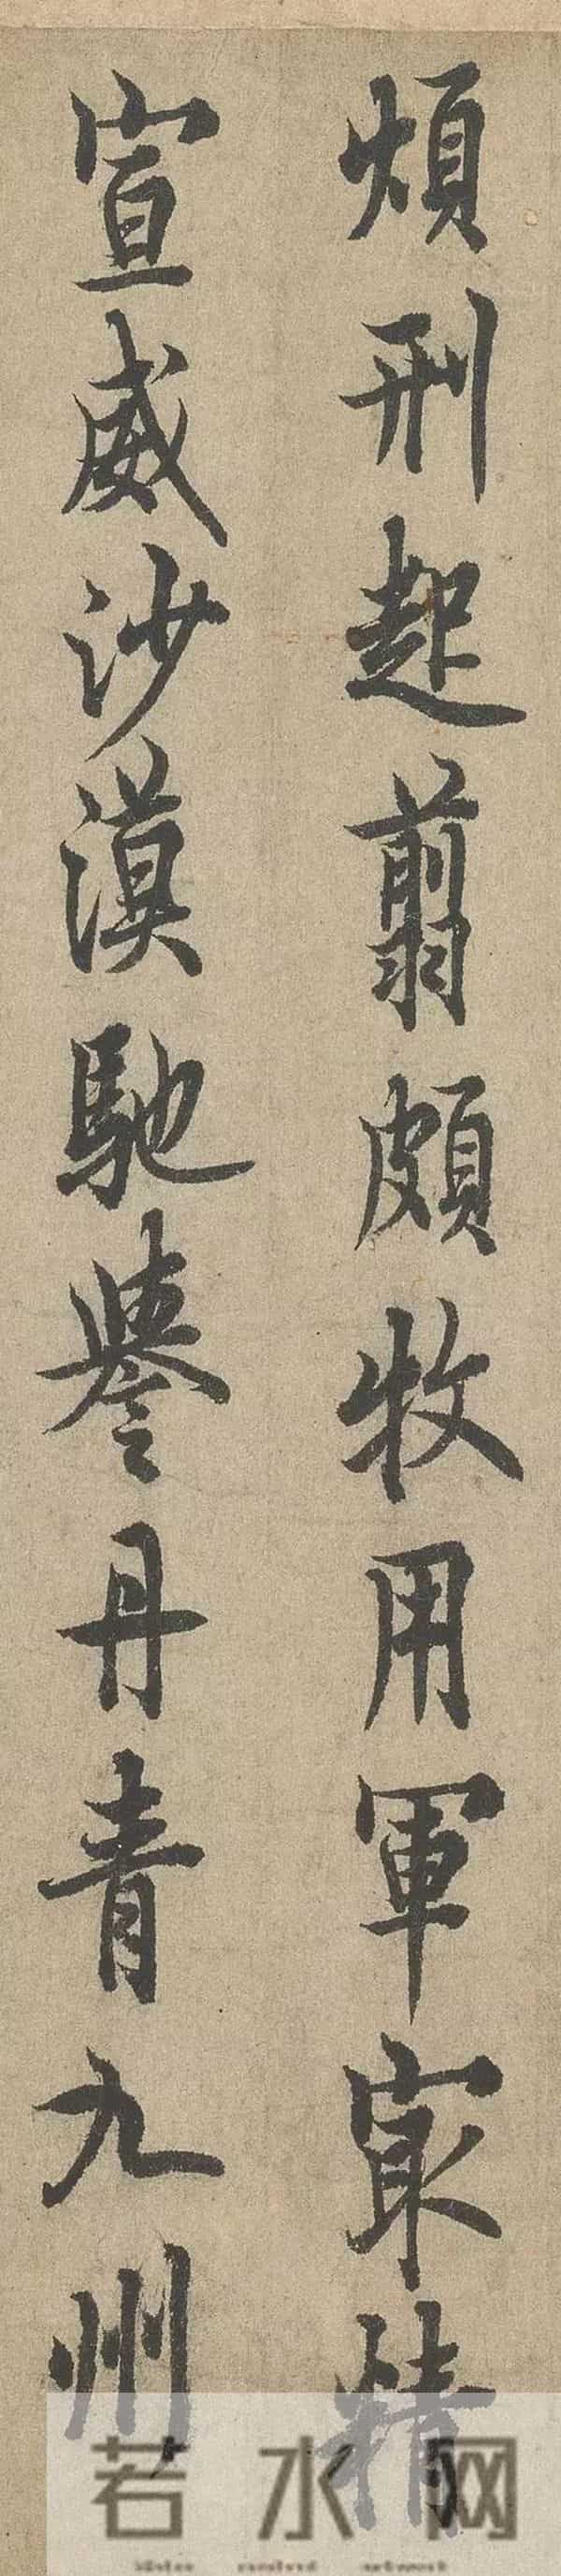 煩刑起翦頗牧用軍宷精
宣威沙漠馳譽丹青九州
若水网